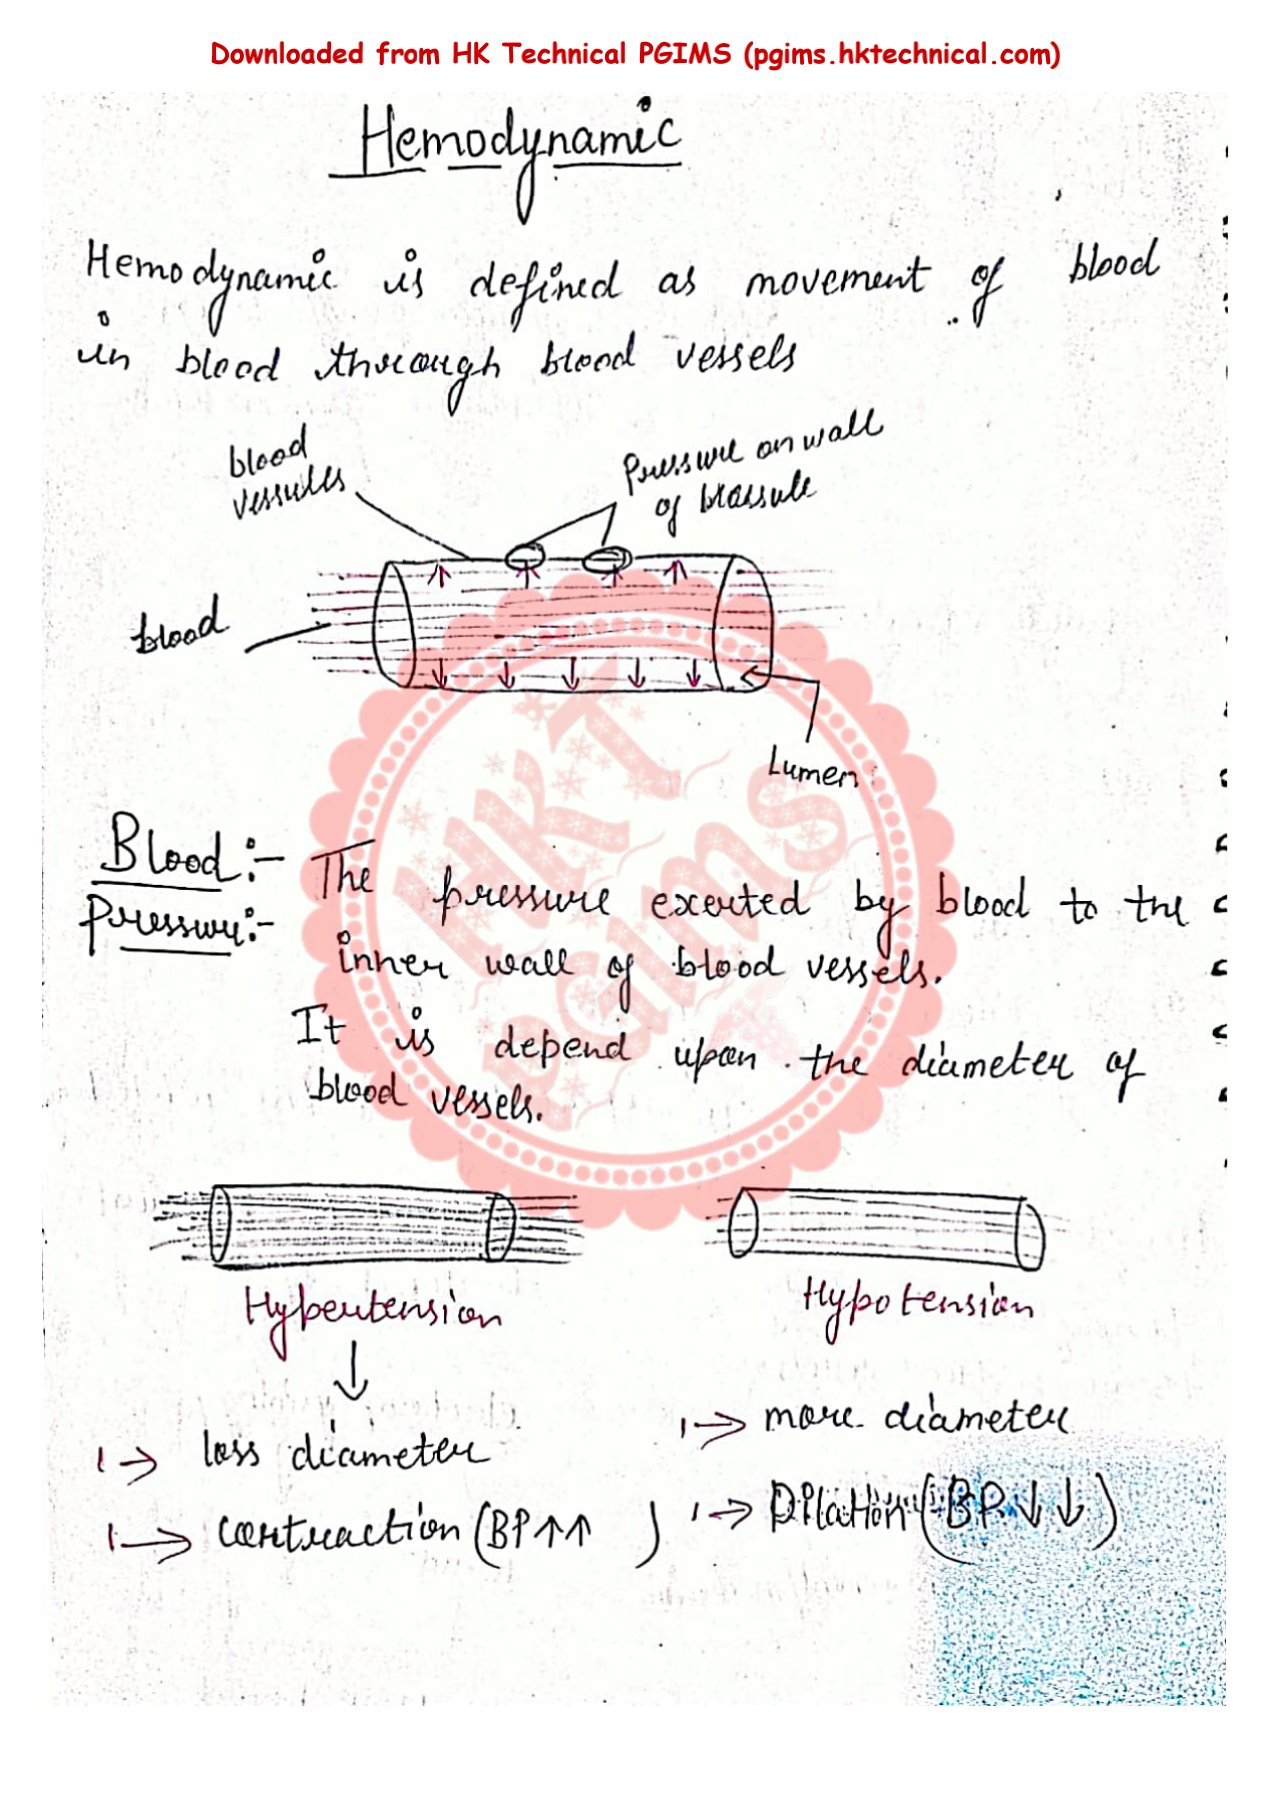 Downloaded from HK Technical PGIMS (pgims.hktechnical.com)
Hemodynamic
Hemodynamic is defined as movement of blood
in blood through blood vessels
blood
vessules
Pressure on wall
of
blood
Lumen
Blood :- The pressure exerted by blood to the
Pressure:- inner wall of blood vessels.
It is depend upon the diameter of
blood vessels.
Hypertension
Hypotension
1→ less diameter
1→ more diameter
1→ contraction (BP↑↑ )
1→ Dilation (BP↓↓)
HKT
PGIMS